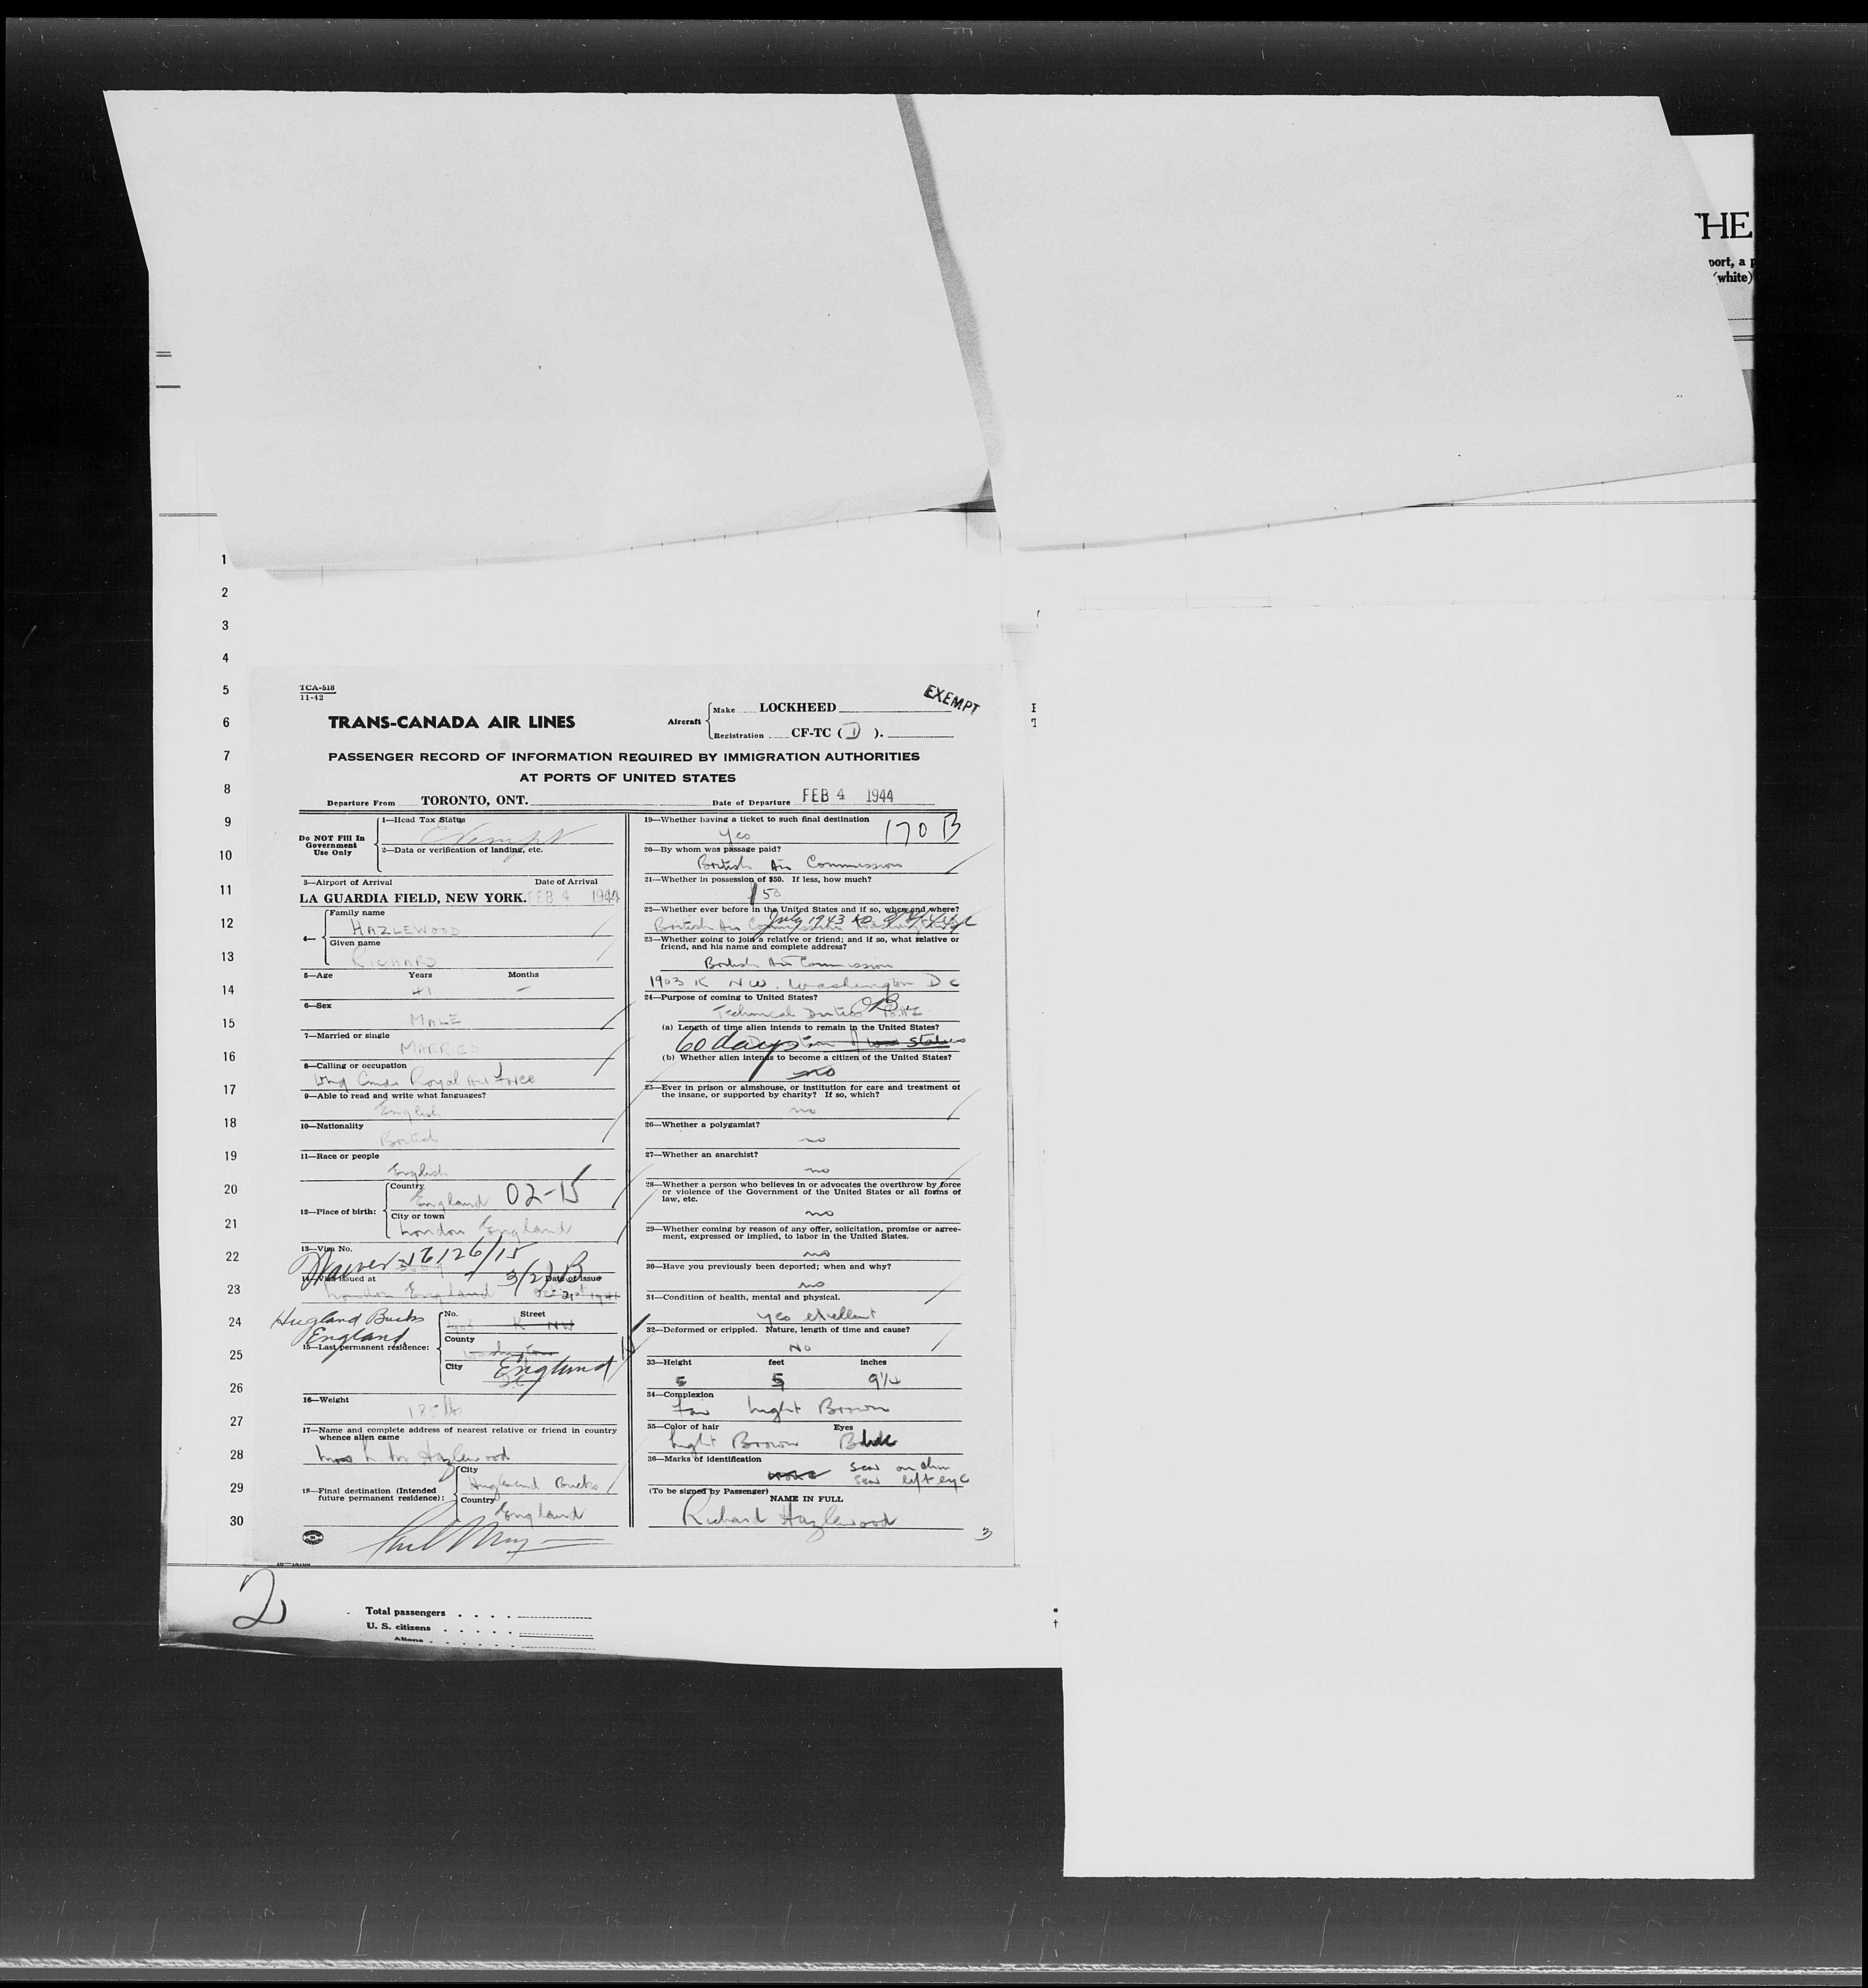 THE
port, a p
(white)
1
2
3
4
5
6
7
8
9
10
11
12
13
14
15
16
17
18
19
20
21
22
23
24
25
26
27
28
29
30
TCA-518
11-42
EXEMPT
TRANS-CANADA AIR LINES
Aircraft
Make LOCKHEED
Registration CF-TC ( D ).
PASSENGER RECORD OF INFORMATION REQUIRED BY IMMIGRATION AUTHORITIES
AT PORTS OF UNITED STATES
Departure From TORONTO, ONT. Date of Departure FEB 4 1944
Do NOT Fill In
Government
Use Only
1—Head Tax Status
Exempt
2—Data or verification of landing, etc.
3—Airport of Arrival Date of Arrival
LA GUARDIA FIELD, NEW YORK. FEB 4 1944
4— Family name
HAZLEWOOD
Given name
RICHARD
5—Age Years Months
41 —
6—Sex
MALE
7—Married or single
MARRIED
8—Calling or occupation
Wng Cmdr Royal Air Force
9—Able to read and write what languages?
English
10—Nationality
British
11—Race or people
English
12—Place of birth:
Country
England 02-15
City or town
London England
13—Visa No.
Waiver 16126/15
14—Visa issued at Date of issue
3/2) B
London England Oct 21st 1941
Hugland Bucks
England
15—Last permanent residence:
No. Street
1903 K NW
County
Washington
City England
16—Weight
185 lbs
17—Name and complete address of nearest relative or friend in country
whence alien came
Mrs L. M Hazlewood
18—Final destination (Intended
future permanent residence):
City
Hugland Bucks
Country
England
19—Whether having a ticket to such final destination
yes 170 B
20—By whom was passage paid?
British Air Commission
21—Whether in possession of $50. If less, how much?
$50
22—Whether ever before in the United States and if so, when and where?
July 1943 to
British Air Commission Washington
23—Whether going to join a relative or friend; and if so, what relative or
friend, and his name and complete address?
British Air Commission
1903 K NW. Washington D C
24—Purpose of coming to United States?
Technical Duties
(a) Length of time alien intends to remain in the United States?
60 days
(b) Whether alien intends to become a citizen of the United States?
no
25—Ever in prison or almshouse, or institution for care and treatment of
the insane, or supported by charity? If so, which?
no
26—Whether a polygamist?
no
27—Whether an anarchist?
no
28—Whether a person who believes in or advocates the overthrow by force
or violence of the Government of the United States or all forms of
law, etc.
no
29—Whether coming by reason of any offer, solicitation, promise or agree-
ment, expressed or implied, to labor in the United States.
no
30—Have you previously been deported; when and why?
no
31—Condition of health, mental and physical.
yes exellent
32—Deformed or crippled. Nature, length of time and cause?
No
33—Height feet inches
5 9¼
34—Complexion
Fair Light Brown
35—Color of hair Eyes
Light Brown
36—Marks of identification
none scar on chin
scar left eye
(To be signed by Passenger)
NAME IN FULL
Richard Hazlewood
3
2
Total passengers
U. S. citizens
Aliens
*
†